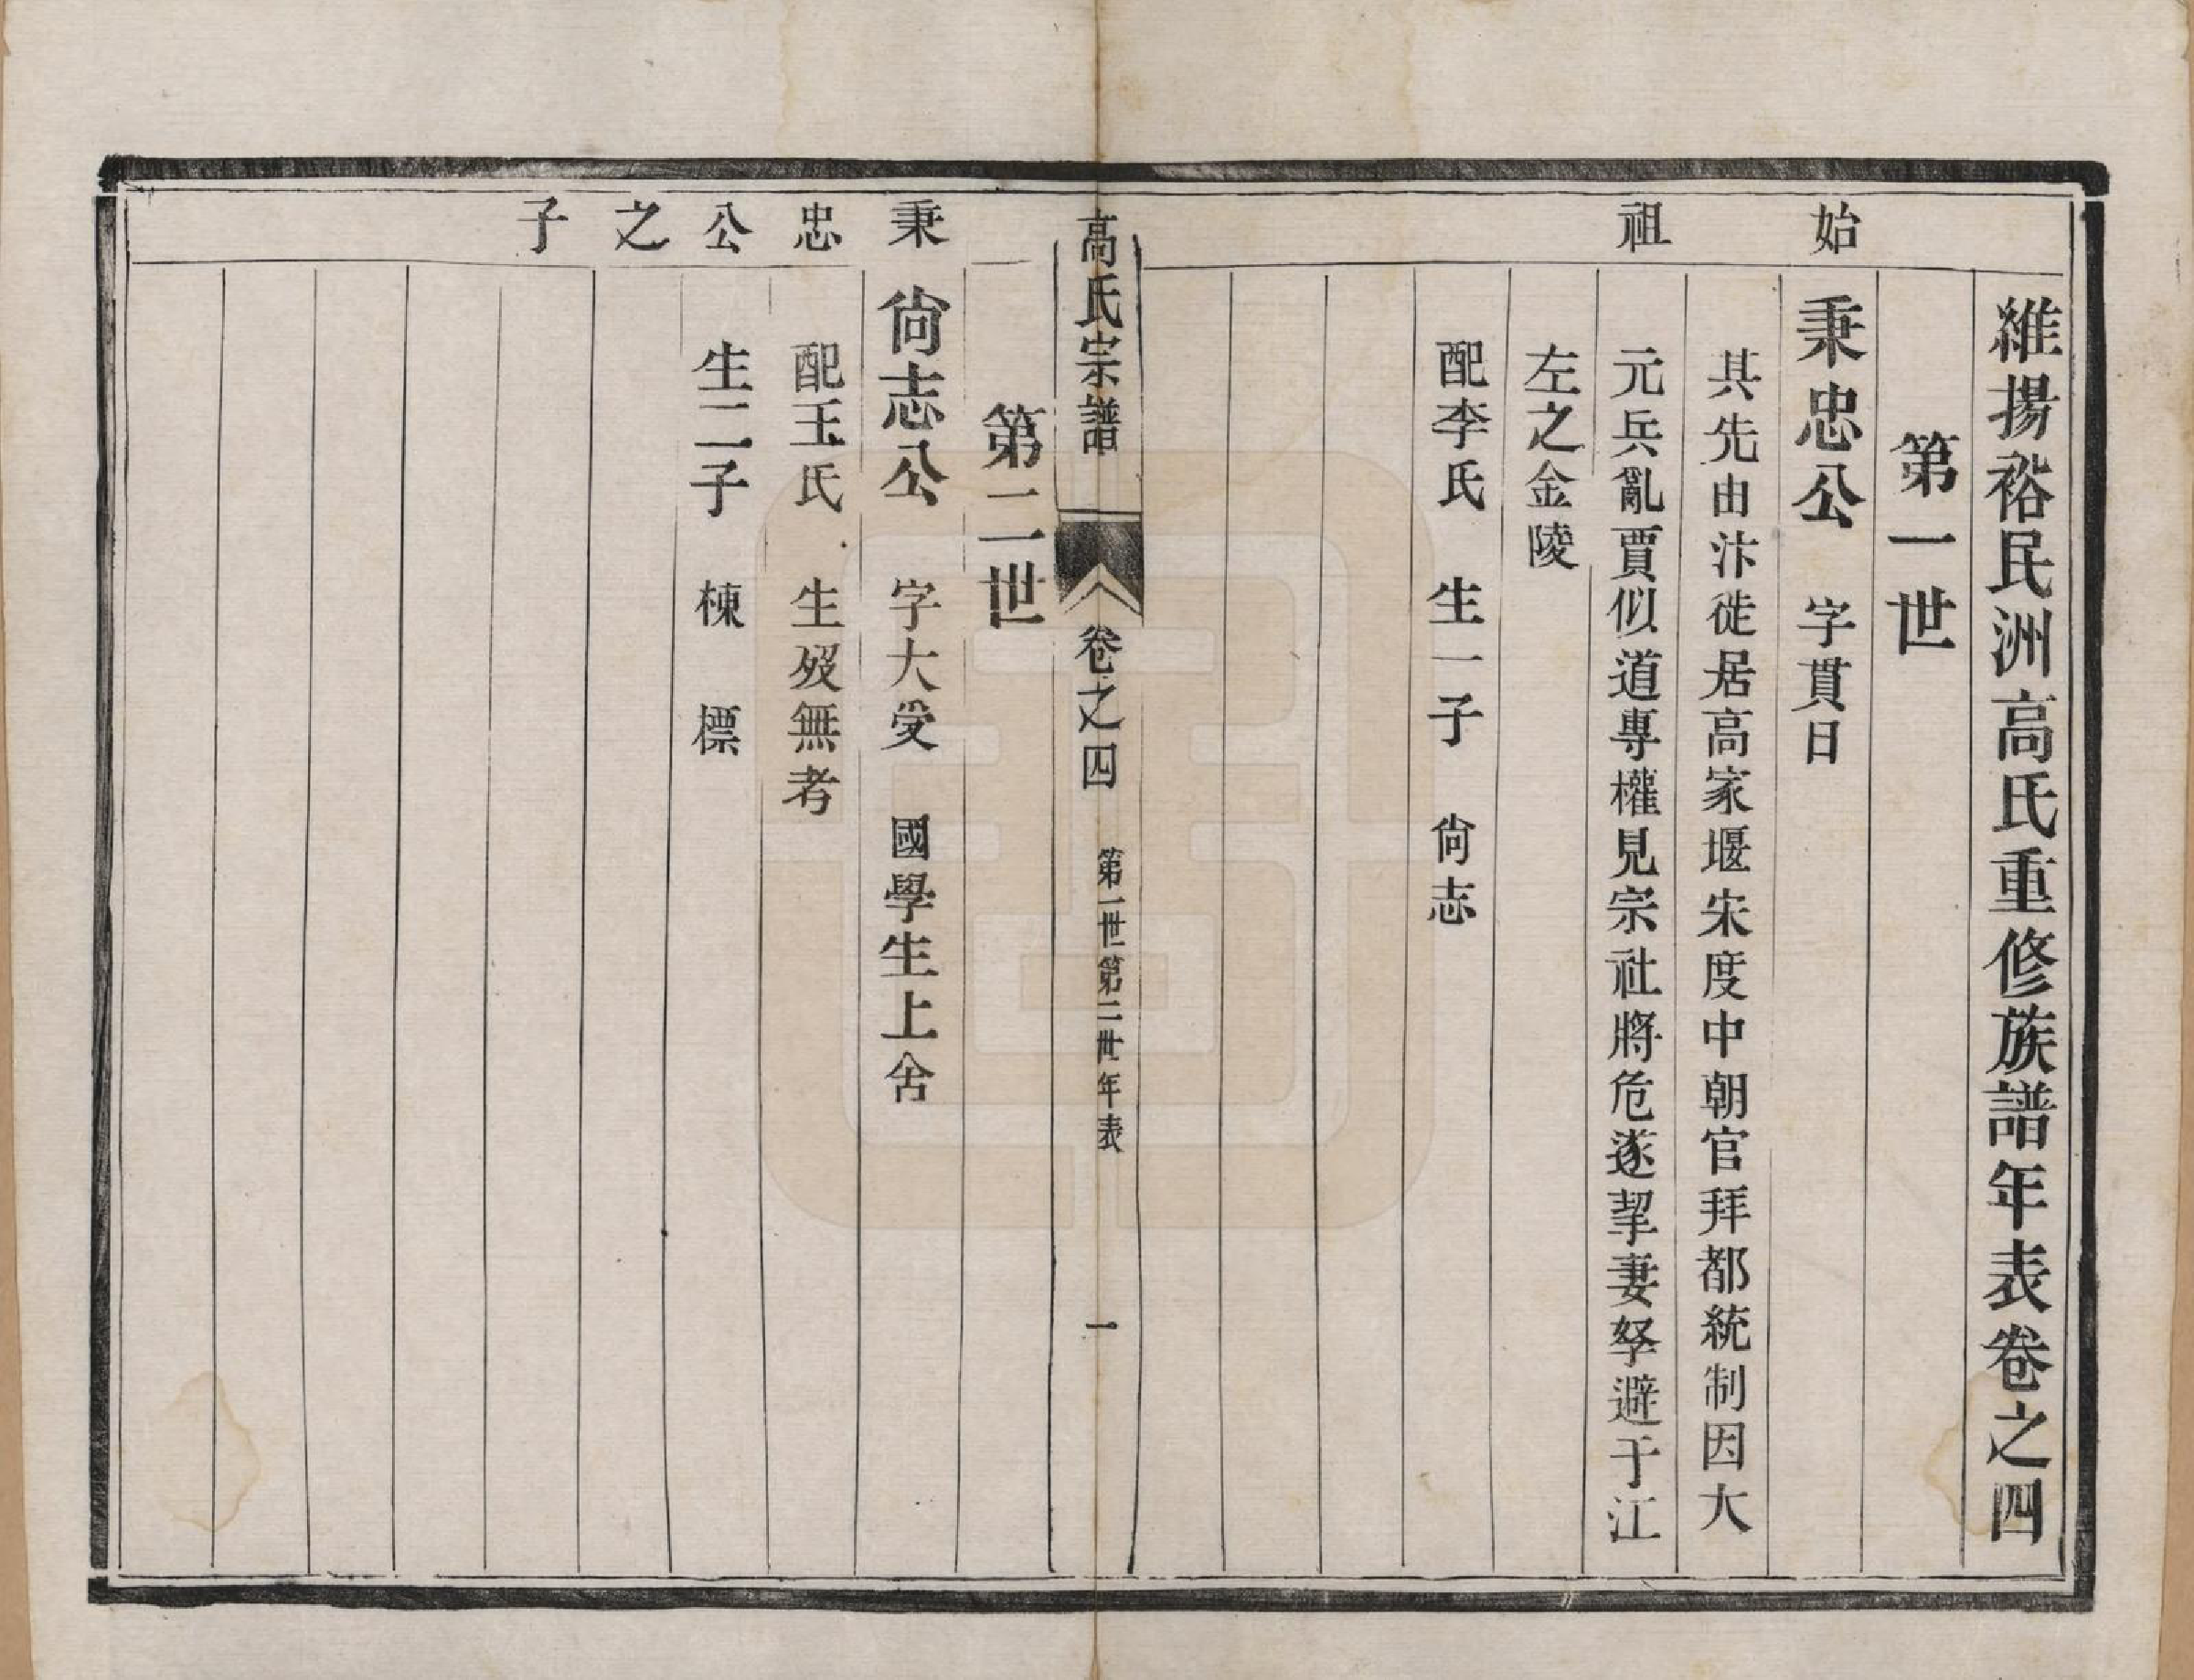 維揚裕民洲高氏重修族譜年表卷之四
第一世
始祖
秉忠公　字貫日
其先由汴徙居高家堰宋度中朝官拜都統制因大
元兵亂賈似道專權見宗社將危遂挈妻孥避于江
左之金陵
配李氏　生一子　尙志
高氏宗譜　卷之四　第一世第二世年表　一
第二世
秉忠公之子
尙志公　字大受　國學生上舍
配王氏　生歿無考
生二子　棟　標